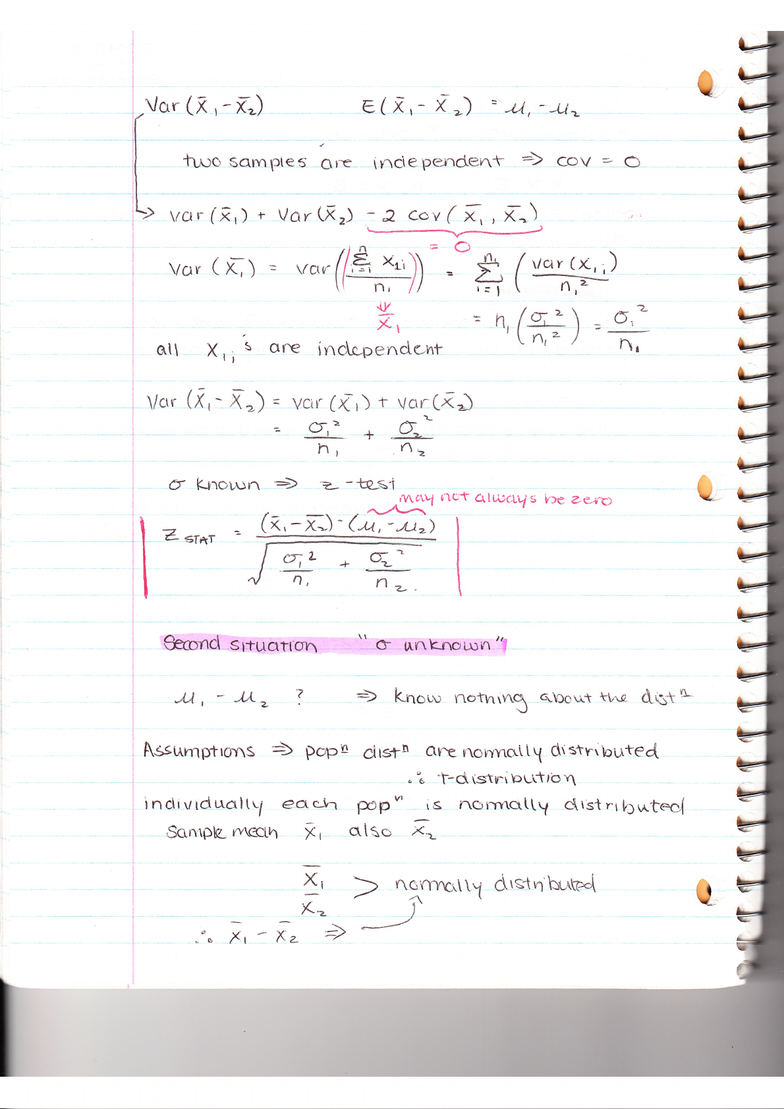 Var(X̄₁-X̄₂) E(X̄₁-X̄₂) = μ₁-μ₂
two samples are independent ⇒ cov = 0
→ var(X̄₁) + Var(X̄₂) - 2 cov(X̄₁, X̄₂)
= 0
Var(X̄₁) = var((Σⁿᵢ₌₁ X₁ᵢ)/n₁) = Σⁿ¹ᵢ₌₁ (var(X₁ⱼ)/n₁²)
⇓ X̄₁ = n₁(σ₁²/n₁²) = σ₁²/n₁
all X₁ⱼ's are independent
Var(X̄₁-X̄₂) = var(X̄₁) + var(X̄₂)
= σ₁²/n₁ + σ₂²/n₂
σ known ⇒ z-test
may not always be zero
Z STAT = ((X̄₁-X̄₂)-(μ₁-μ₂))/√(σ₁²/n₁ + σ₂²/n₂)
Second situation "σ unknown"
μ₁-μ₂ ? ⇒ know nothing about the distⁿ
Assumptions ⇒ popⁿ distⁿ are normally distributed
∴ t-distribution
individually each popⁿ is normally distributed
Sample mean X̄₁ also X̄₂
X̄₁
> normally distributed
X̄₂
∴ X̄₁ - X̄₂ ⇒